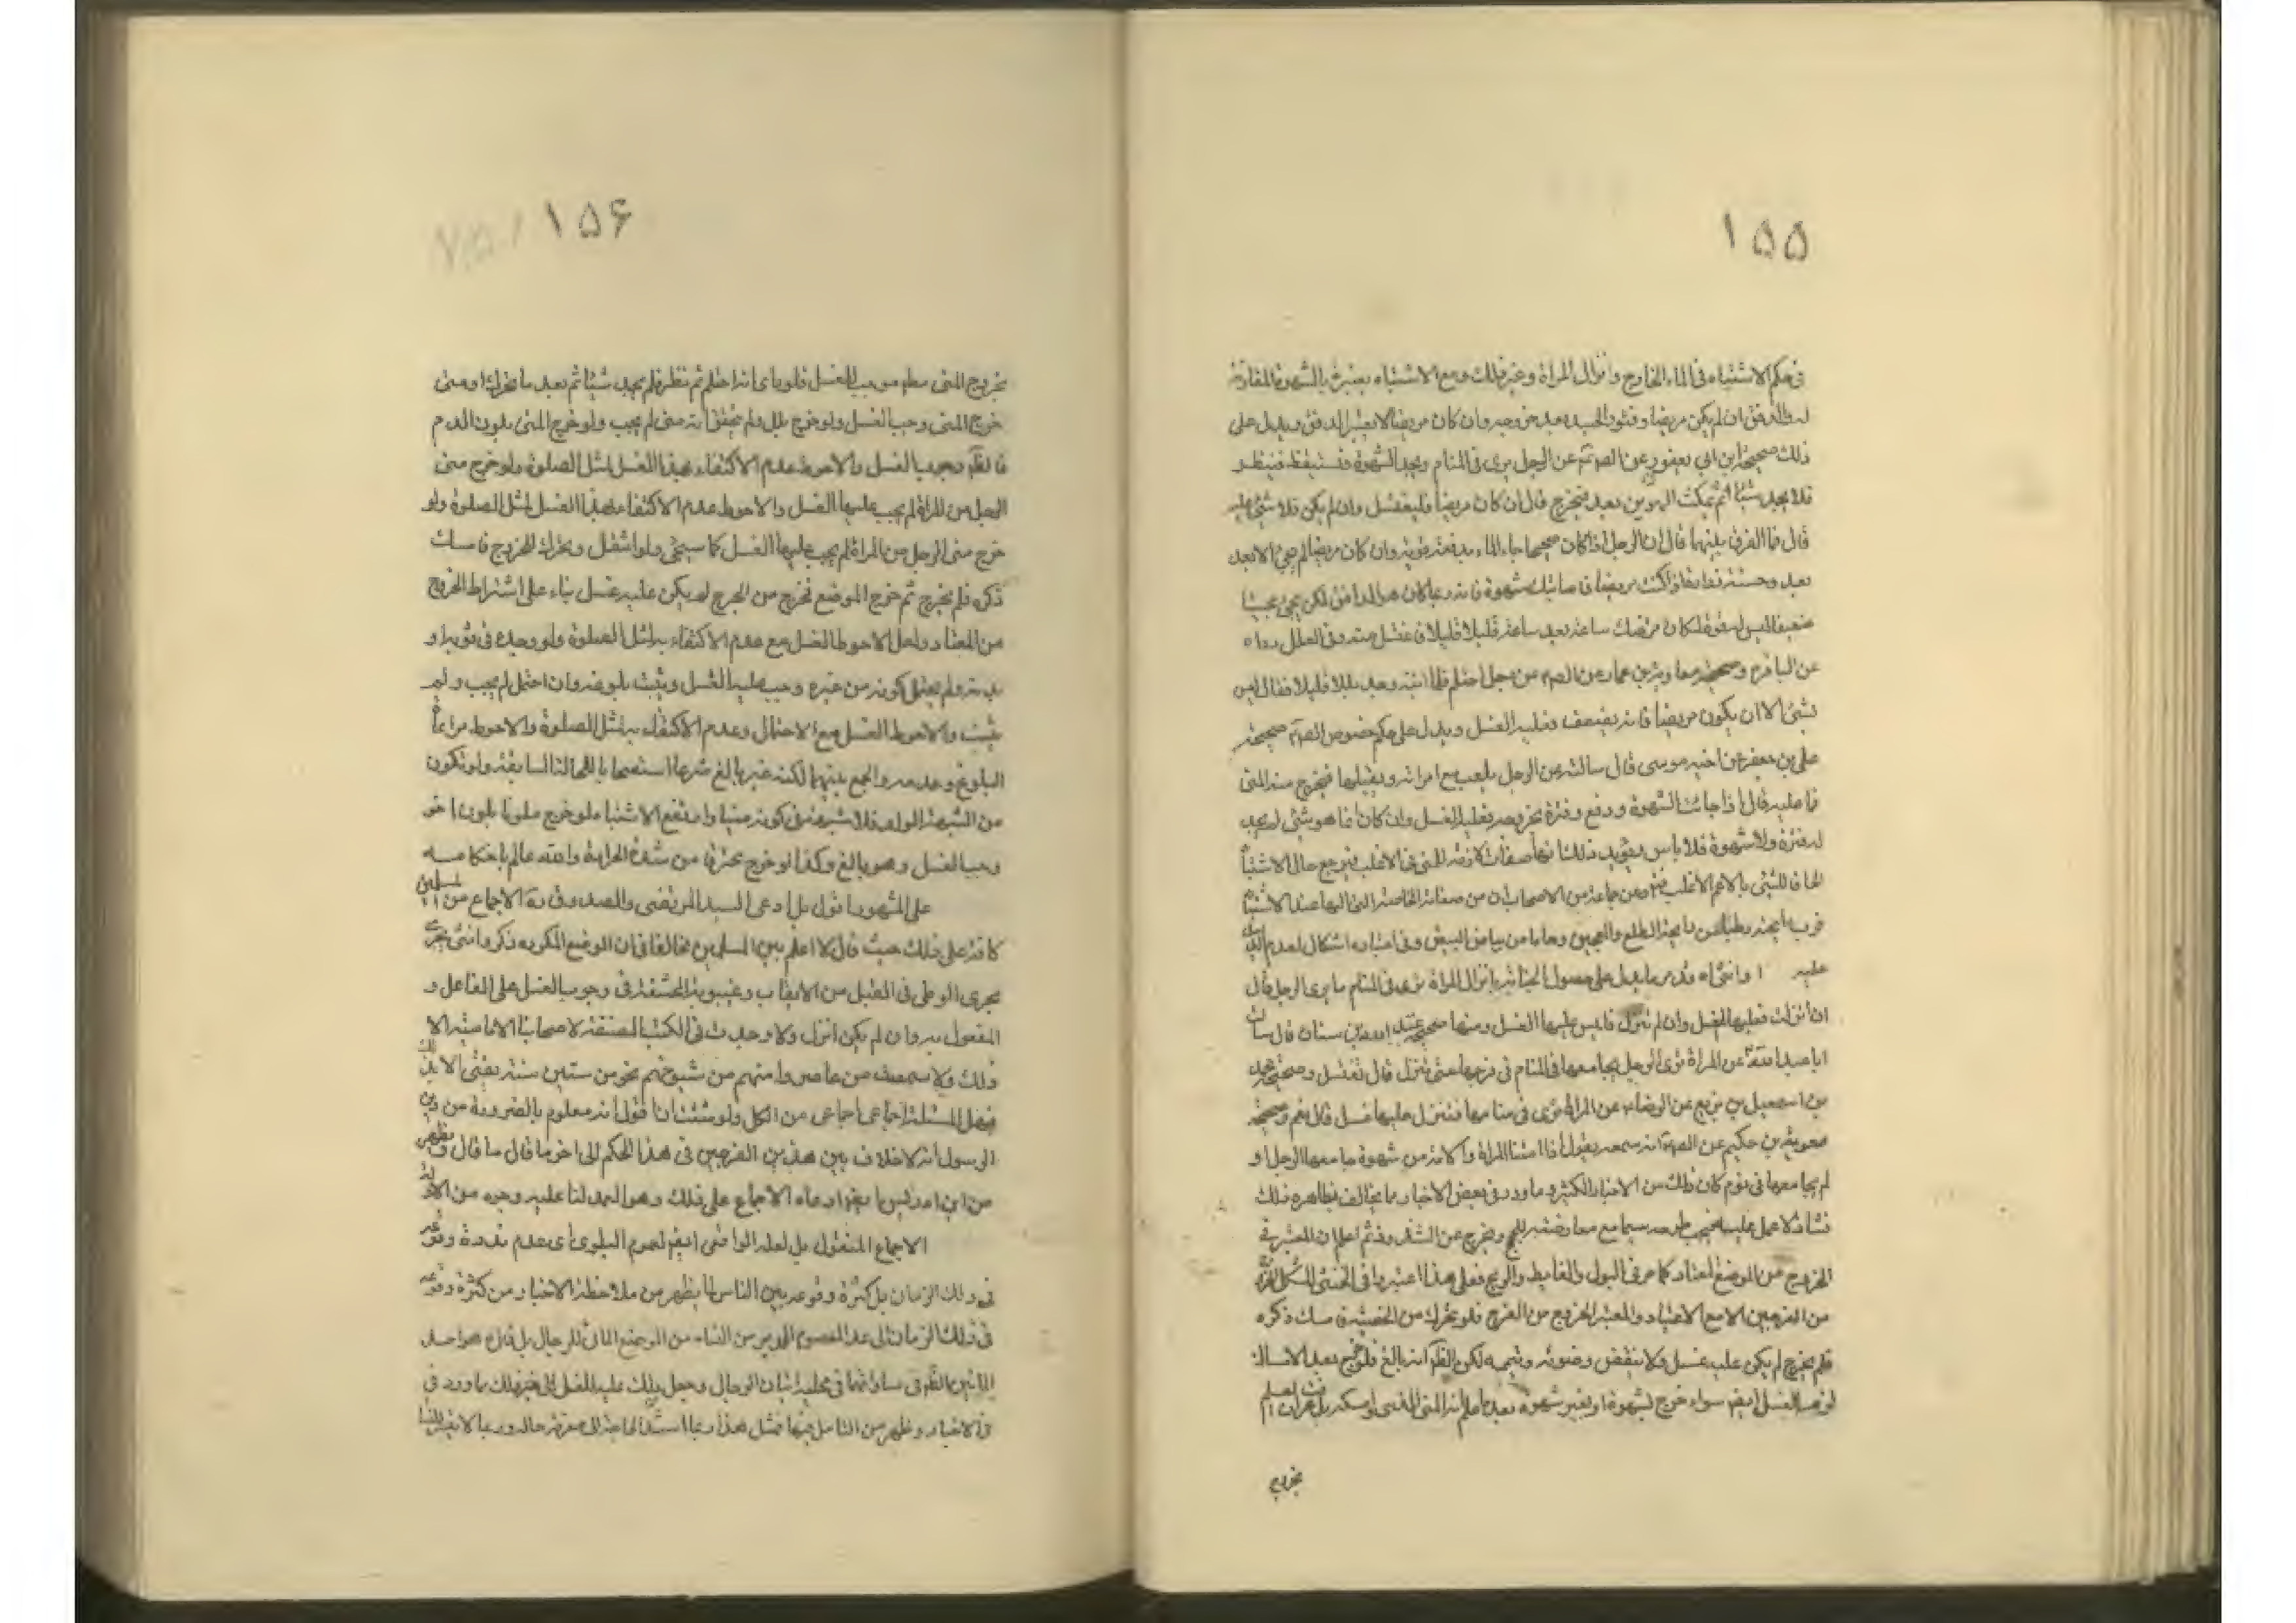 ١۵۵
فى حكم الاشتباه فى الماء الخارج وانزال المراة وغير ذلك ومع الاشتباه يعتبر بالشهوة المقارنة
له والدفق ان لم يكن مريضا وفتور الجسد بعد خروجه وان كان مريضا لا يعتبر الدفق ويدل على
ذلك صحيحة ابن ابى يعفور عن الصم عن الرجل يرى فى المنام ويجد الشهوة فيستيقظ فينظر
فلا يجد شيئا ثم يمكث الهوين بعد فيخرج قال ان كان مريضا فليغتسل وان لم يكن فلا شئ عليه
قال فما الفرق بينهما قال ان الرجل اذا كان صحيحا جاء الماء بدفعة قوية وان كان مريضا لم يجئ الا بعد
بعد وحسنة زرارة اذا كنت مريضا فاصابتك شهوة فانه ربما كان هو الدافق لكن يجئ مجيئا
ضعيفا ليس له قوة لمكان مرضك ساعة بعد ساعة قليلا قليلا فاغتسل منه وفى العلل رواه
عن الباقر م وصحيحة معاوية بن عمار عن الصم عن رجل احتلم فلما انتبه وجد بللا قليلا فقال ليس
بشئ الا ان يكون مريضا فانه يضعف فعليه الغسل ويدل على حكم خصوص الصم صحيحة
على بن جعفر عن اخيه موسى قال سالته عن الرجل يلعب مع امراته ويقبلها فيخرج منه المنى
فما عليه قال اذا جائت الشهوة ودفع وفترة بخروجه فعليه الغسل وان كان انما هو شئ لم يجد
له فترة ولا شهوة فلا باس ويؤيد ذلك انها صفات لازمة للمنى فى الاغلب فيرجع حال الاشتباه
الحاقا للشئ بالاعم الاغلب وعن جماعة من الاصحاب ان من صفاته الخاصة التى اليها عند الاشتباه
قرب رايحته رطبا من رايحة الطلع والعجين وجافا من بياض البيض وفى اعتباره اشكال لعدم الدليل
عليه وانثاه وقد مر ما يدل على حصول الجنابة بانزال المراة ترى فى المنام ما يرى الرجل قال
ان انزلت فعليها الغسل وان لم تنزل فليس عليها الغسل ومنها صحيحة عبد الله بن سنان قال سالت
ابا عبد الله عن المراة ترى الرجل يجامعها فى المنام فى فرجها حتى تنزل قال تغتسل وصحيحة محمد
بن اسمعيل بن بزيع عن الرضا م عن المراة ترى فى منامها فتنزل عليها غسل قال نعم وصحيحة
معوية بن حكيم عن الصم انه سمعه يقول اذا امنت المراة والامة من شهوة جامعها الرجل او
لم يجامعها فى نوم كان ذلك من الاخبار الكثيرة وما ورد فى بعض الاخبار ما يخالف بظاهره ذلك
فشاذ لا عمل عليه فيجب طرحه سيما مع معارضته
الخروج من الموضع المعتاد كما مر فى البول والغايط والريح فعلى هذا اعتبروا فى الخنثى المشكل
من الفرجين الا مع الاعتياد والمعتبر الخروج من الفرج فلو تحرك من الخصية فامسك ذكره
فلم يخرج لم يكن عليه غسل ولا ينقض وضوئه وتيممه لكن الظم انه بالغ فلو خرج بعد الامساك
لزمه الغسل ايضم سواء خرج لشهوة او بغير شهوة بعد ما علم انه المنى الذى امسكه
بخروج
١۵۶
بخروج المنى مطم موجب للغسل فلو راى انه احتلم ثم نظر فلم يجد شيئا ثم بعد ما تحرك او مشى
خرج المنى وجب الغسل ولو خرج بلل ولم يتحقق انه منى لم يجب ولو خرج المنى بلون الدم
فالظم وجوب الغسل والاحوط عدم الاكتفاء بهذا الغسل لمثل الصلوة ولو خرج منى
الرجل من المراة لم يجب عليها الغسل والاحوط عدم الاكتفاء بهذا الغسل لمثل الصلوة ولو
خرج منى الرجل من المراة لم يجب عليها الغسل كما سيجئ ولو انتقل وتحرك للخروج فامسك
ذكره فلم يخرج ثم خرج الموضع فخرج من الجرح لم يكن عليه غسل بناء على اشتراط الخروج
من المعتاد ولعل الاحوط الغسل مع عدم الاكتفاء به لمثل الصلوة ولو وجده فى ثوبه او
بدنه ولم يحتمل كونه من غيره وجب عليه الغسل ويثبت بلوغه وان احتمل لم يجب ولم
يثبت والاحوط الغسل مع الاحتمال وعدم الاكتفاء به لمثل الصلوة والاحوط مراعاة
البلوغ وعدمه والجمع بينهما لكنه غير بالغ شرعا استصحابا للحالة السابقة ولو تكون
من الشبهة الولد فلا شبهة فى كونه منيا وارتفع الاشتباه ولو خرج ملونا بلون اخر
وجب الغسل وهو بالغ وكذا لو خرج محترقا من شدة الحرارة والله عالم باحكامه
على المشهور اقول بل ادعى السيد المرتضى والصدوق ره الاجماع من المسلمين
كافة على ذلك حيث قال لا اعلم بين المسلمين مخالفا فى ان الوطى فى الموضع المكروه ذكر وانثى يجرى
مجرى الوطى فى القبل من الايقاب وغيبوبة الحشفة فى وجوب الغسل على الفاعل و
المفعول به وان لم يكن انزل ولا وجدت فى الكتب المصنفة لاصحابنا الامامية الا
ذلك ولا سمعت من عاصروا منهم من شيوخهم نحو من ستين سنة يفتى الا بذلك
فهذه المسئلة اجماعى من الكل ولو شئت ان اقول انه معلوم بالضرورة من دين
الرسول انه لا خلاف بين هذين الفرجين فى هذا الحكم الى اخر ما قال ما قال ويظهر
من ابن ادريس ايضم ادعاه الاجماع على ذلك وهو العمد لنا عليه وجوه من الادلة
الاجماع المنقول بل لعله الواقعى ايضم لعموم البلوى اى عدم ندرة وقوعه
فى ذلك الزمان بل كثرة وقوعه بين الناس كما يظهر من ملاحظة الاخبار من كثرة وقوعه
فى ذلك الزمان الى عد المعصوم الدبر من النساء من الموضع الماتى للرجال بل قال م هو احد
الماتيين الظم فى مساواتهما فى محلية اتيان الرجال وجعل ذلك عليه الغسل الى غير ذلك ما ورد فى
فى الاخبار ويظهر من التامل فيها فمثل هذا ربما اشتد الحاجة الى معرفة حاله وربما لا يفتر النساء